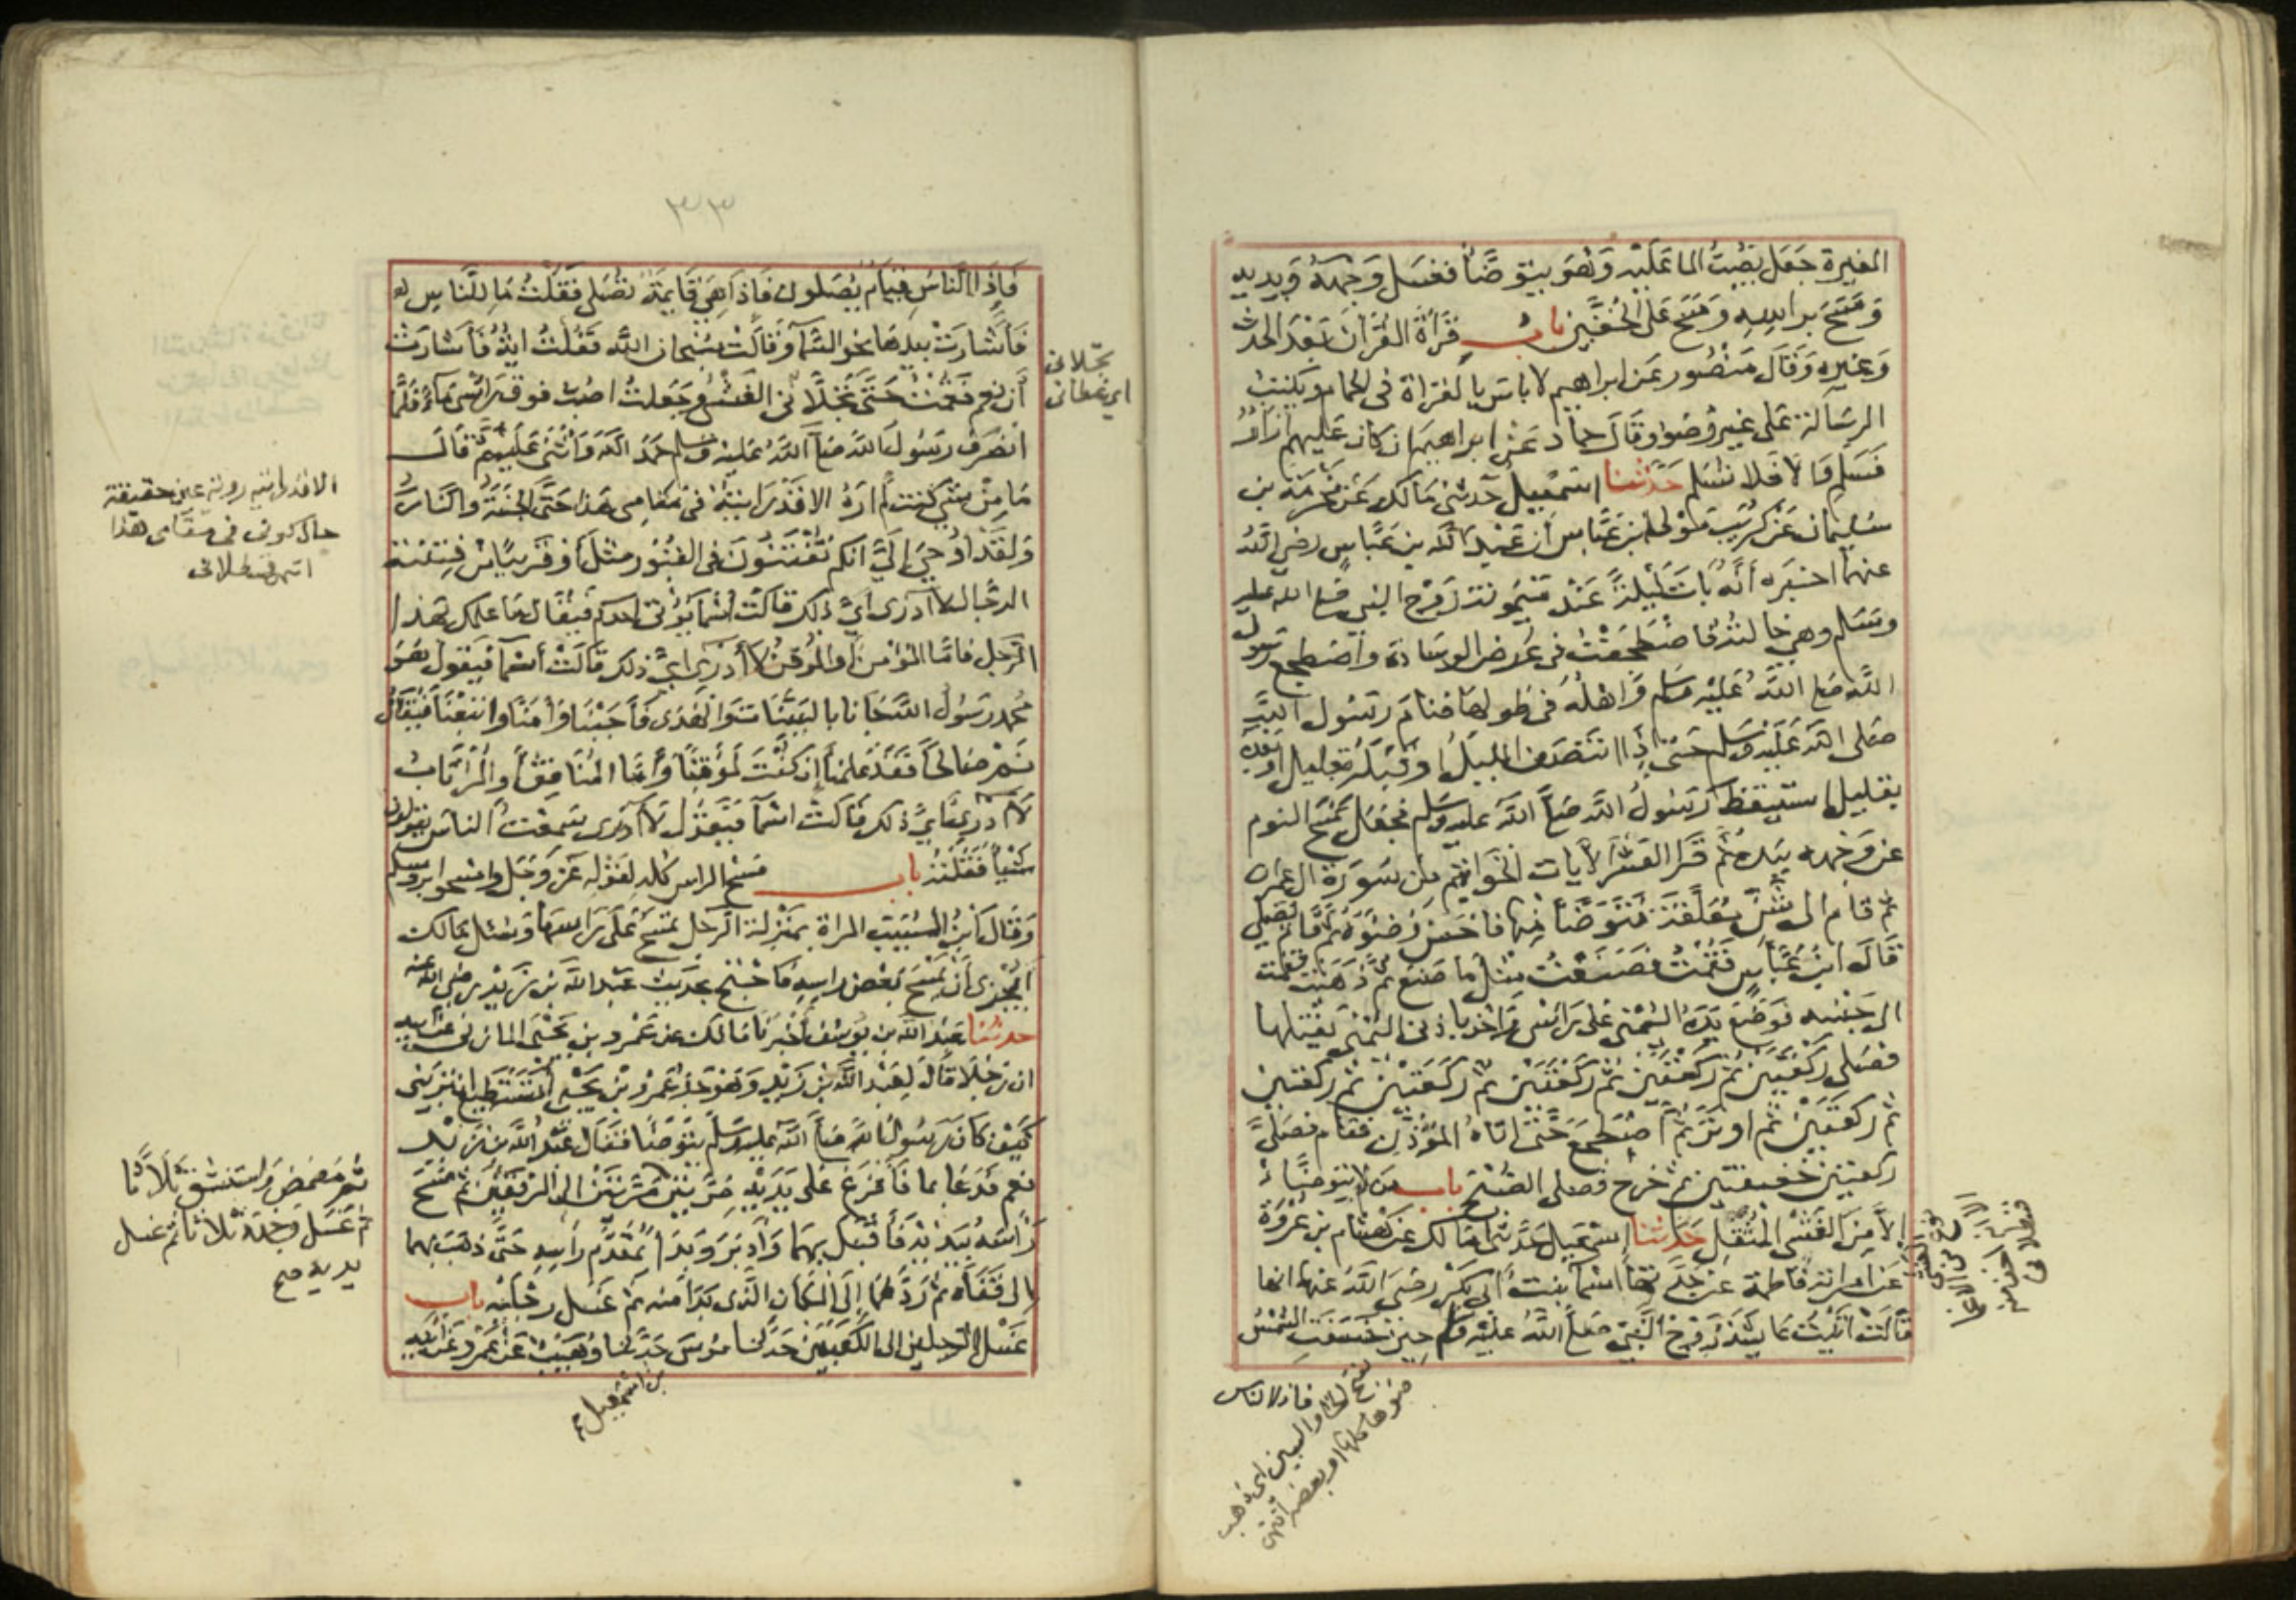 المغيرة جعل يصب الماء عليه وهو يتوضأ فغسل وجهه ويديه
ومسح براسه ومسح على الخفين باب قراة القران بعد الحدث
وغيره وقال منصور عن ابراهيم لا باس بالقراة في الحمام وبكتب
الرسالة على غير وضوء وقال حماد عن ابراهيم ان كان عليهم ازار
فسلم والا فلا تسلم حدثنا اسمعيل حدثني مالك عن مخرمة بن
سليمان عن كريب مولى بن عباس ان عبد الله بن عباس رضي الله
عنهما اخبره أنه بات ليلة عند ميمونة زوج النبي صلى الله عليه
وسلم وهي خالته فاضطجعت في عرض الوسادة واضطجع رسول
الله صلى الله عليه وسلم واهله في طولها فنام رسول الله
صلى الله عليه وسلم حتى إذا انتصف الليل او قبله بقليل او بعده
بقليل استيقظ رسول الله صلى الله عليه وسلم فجعل يمسح النوم
عن وجهه بيده ثم قرا العشر الآيات الخواتم من سورة ال عمران
ثم قام الى شن معلقة فتوضأ منها فاحسن وضوءه ثم قام يصلي
قال ابن عباس فقمت فصنعت مثل ما صنع ثم ذهبت فقمت
الى جنبه فوضع يده اليمنى على راسي واخذ باذني اليمنى يفتلها
فصلى ركعتين ثم ركعتين ثم ركعتين ثم ركعتين ثم ركعتين
ثم ركعتين ثم اوتر ثم اضطجع حتى اتاه المؤذن فقام فصلى
ركعتين خفيفتين ثم خرج فصلى الصبح باب من لم يتوضأ
إلا من الغشي المثقل حدثنا اسمعيل حدثني مالك عن هشام بن عروة
عن امراته فاطمة عن جدتها اسماء بنت أبي بكر رضي الله عنهما انها
قالت اتيت عايشة زوج النبي صلى الله عليه وسلم حين خسفت الشمس
فاذا الناس
بفتح الخاء والسين اي ذهب
ضوءها كلها او بعضه انتهى
فإذا الناس قيام يصلون فإذا هي قايمة تصلي فقلت ما للناس
فأشارت بيدها نحو السماء وقالت سبحان الله فقلت اية فأشارت
أن نعم فقمت حتى تجلاني الغشي وجعلت اصب فوق راسي ماء فلما
انصرف رسول الله صلى الله عليه وسلم حمد الله واثنى عليه ثم قال
ما من شي كنت لم اره الا قد رايته في مقامي هذا حتى الجنة والنار
ولقد أوحي إلي انكم تفتنون في القبور مثل أو قريبا من فتنة
الدجال لا أدري أي ذلك قالت أسماء يؤتى احدكم فيقال ما علمك بهذا
الرجل فاما المؤمن أو الموقن لا أدري أي ذلك قالت أسماء فيقول هو
محمد رسول الله جانا بالبينات والهدى فأجبنا وآمنا واتبعنا فيقال
نم صالحا فقد علمنا إن كنت لموقنا وأما المنافق أو المرتاب
لا أدري أي ذلك قالت اسماء فيقول لا أدري سمعت الناس يقولون
شيئا فقلته باب مسح الراس كله لقوله عز وجل وامسحوا بروسكم
وقال ابن المسيب المراة بمنزلة الرجل تمسح على راسها وسئل مالك
ايجزي أن يمسح بعض راسه فاحتج بحديث عبد الله بن زيد رضي الله عنه
حدثنا عبد الله بن يوسف أخبرنا مالك عن عمرو بن يحيى المازني عن ابيه
ان رجلا قال لعبد الله بن زيد وهو جد عمرو بن يحيى أتستطيع ان تريني
كيف كان رسول الله صلى الله عليه وسلم يتوضأ فقال عبد الله بن زيد
نعم فدعا بماء فأفرغ على يديه مرتين مرتين الى المرفقين ثم مسح
رأسه بيديه فأقبل بهما وأدبر وبدأ بمقدم رأسه حتى ذهب بهما
الى قفاه ثم ردهما إلى المكان الذي بدا منه ثم غسل رجليه باب
غسل الرجلين الى الكعبين حدثنا موسى حدثنا وهيب عن عمرو عن ابيه
بن اسمعيل
تجلاني
اي غطاني
الا قد رايته روية عين حقيقة
حال كوني في مقامي هذا
انتهى قسطلاني
ثم مضمض واستنشق ثلاثا
ثم غسل وجهه ثلاثا ثم غسل
يديه صح
٣٣